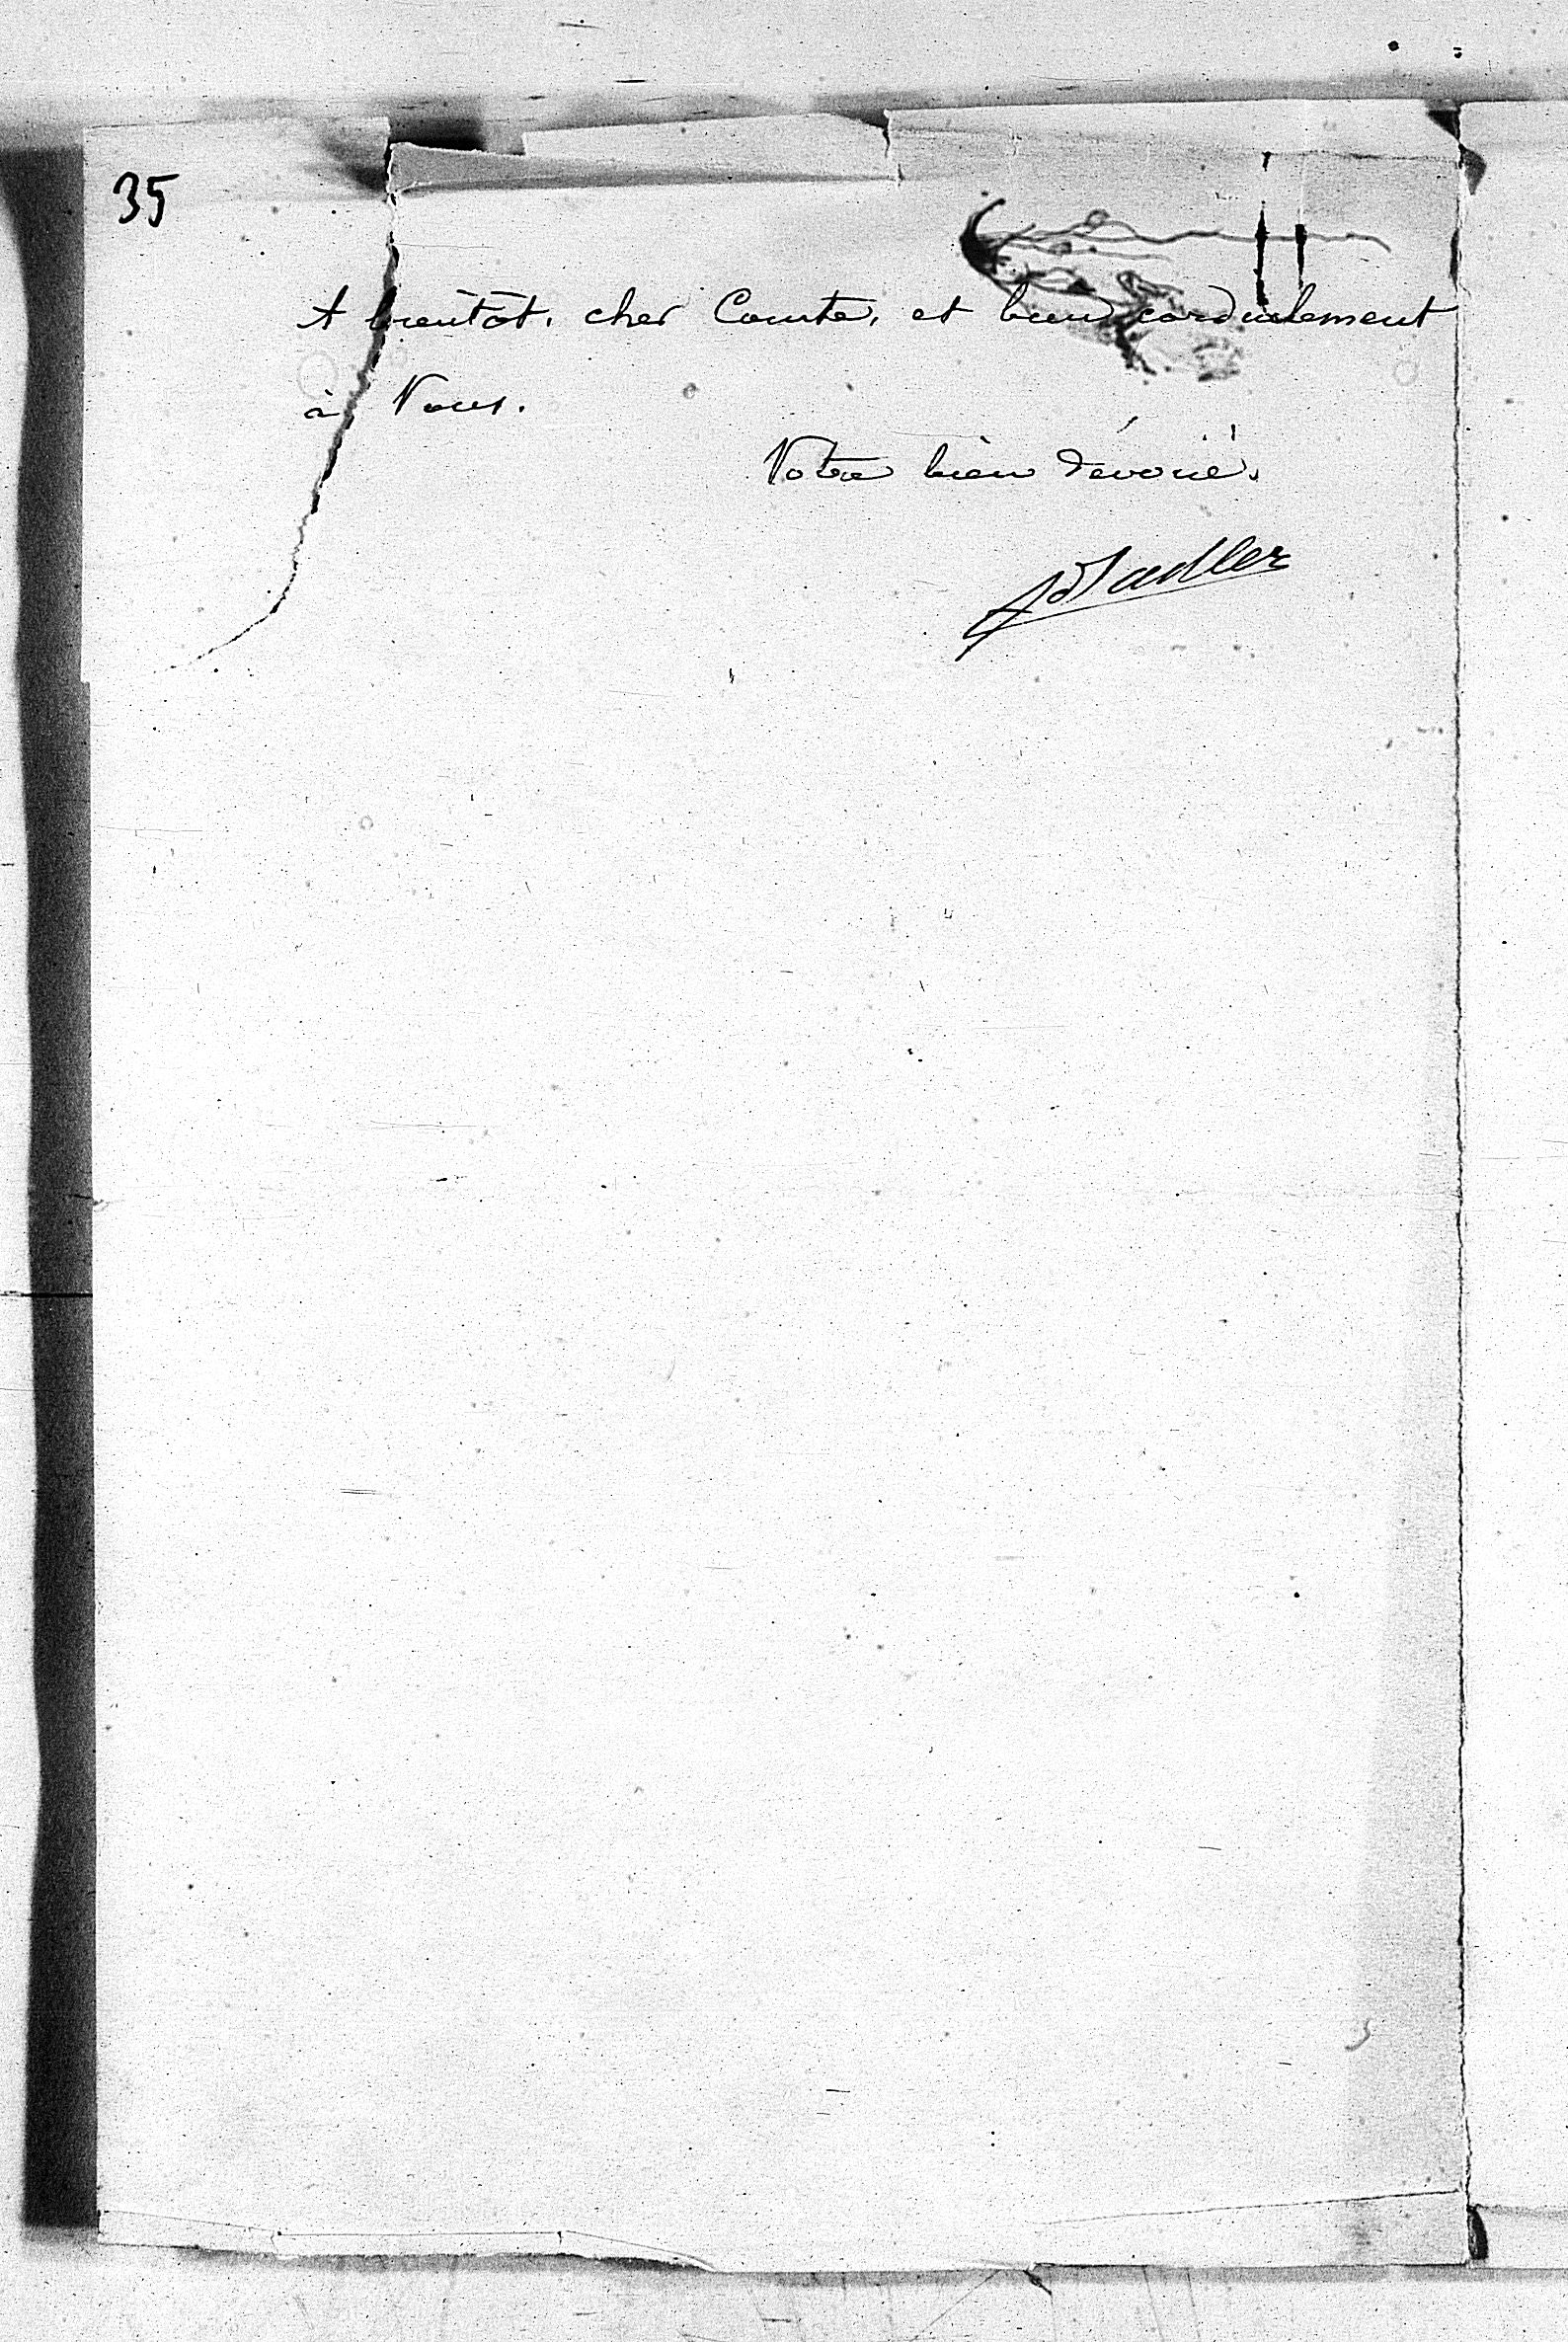 35
A bientôt, cher Comte, et bien cordialement
à Vous.
Votre bien dévoué.